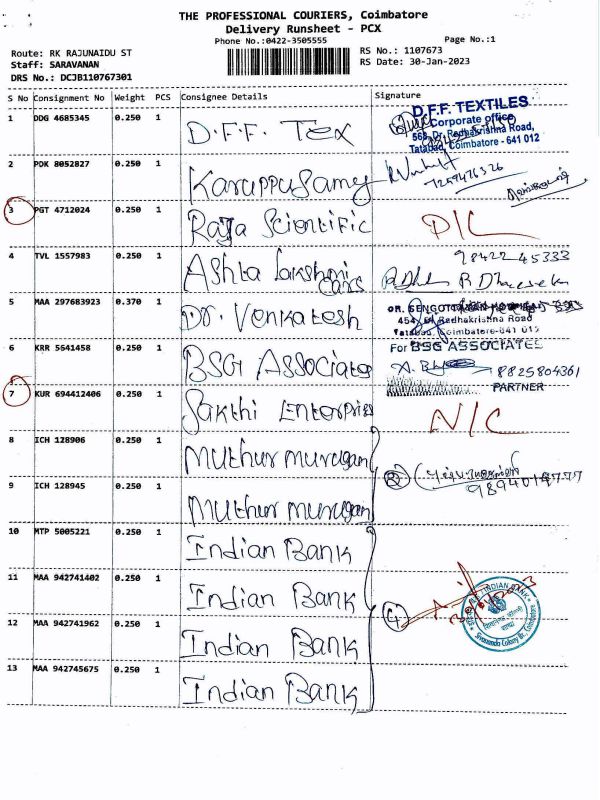 THE PROFESSIONAL COURIERS, Coimbatore
Delivery Runsheet - PCX
Phone No.:0422-3505555
Page No.:1
Route: RK RAJUNAIDU ST
RS No.: 1107673
Staff: SARAVANAN
RS Date: 30-Jan-2023
DRS No.: DCJB110767301
S No Consignment No Weight PCS Consignee Details Signature
1 DDG 4685345 0.250 1 D.F.F. Tex
D.F.F. TEXTILES
Corporate office
568, Dr. Radhakrishna Road,
Tatabad, Coimbatore - 641 012
2 PDK 8052827 0.250 1 Karuppusamy
7259476326
3 PGT 4712024 0.250 1 Raja Scientific D/C
4 TVL 1557983 0.250 1 Ashta Lakshmi Cars
98422 45333
5 MAA 297683923 0.370 1 Dr. Venkatesh
Radhakrishna Road
Tatabad, Coimbatore-641 012
6 KRR 5541458 0.250 1 BSG Associates
For BSG ASSOCIATES
8825804361
PARTNER
7 KUR 694412406 0.250 1 Sakthi Enterprises N/C
8 ICH 128906 0.250 1 Muthur murugan
9 ICH 128945 0.250 1 Muthur murugan
2
10 MTP 5005221 0.250 1 Indian Bank
11 MAA 942741402 0.250 1 Indian Bank
12 MAA 942741962 0.250 1 Indian Bank
4
INDIAN BANK
Sivananda Colony Br., Coimbatore
13 MAA 942745675 0.250 1 Indian Bank